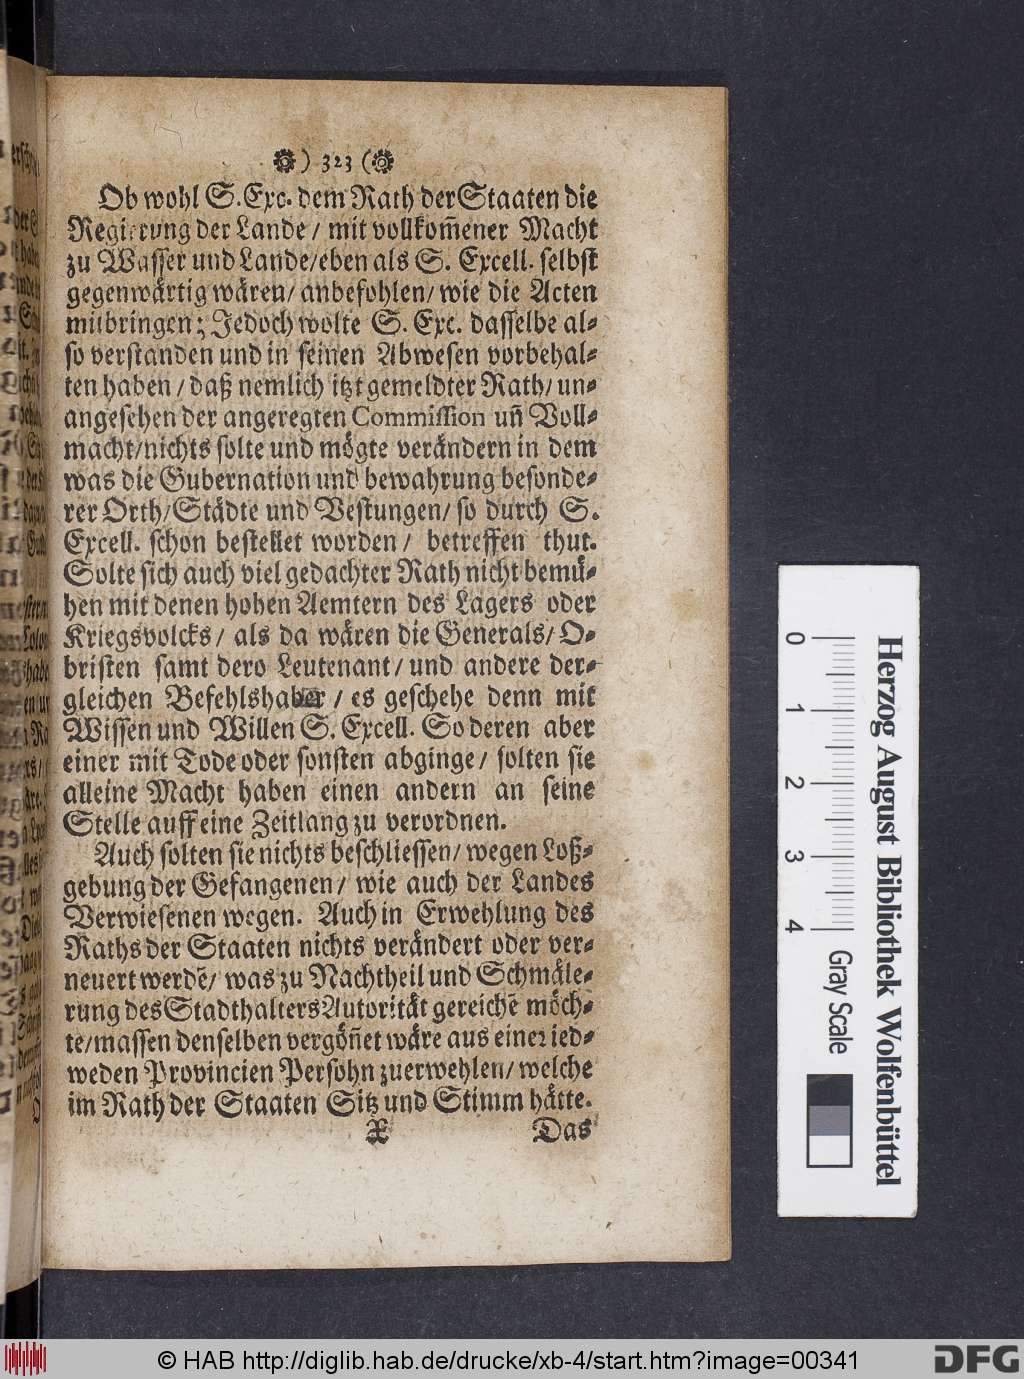 ❁ ) 323 ( ❁
Ob wohl S. Exc. dem Rath der Staaten die
Regierung der Lande / mit vollkom̃ener Macht
zu Wasser und Lande/eben als S. Excell. selbst
gegenwärtig wären/ anbefohlen/ wie die Acten
mitbringen; Jedoch wolte S. Exc. dasselbe al-
so verstanden und in seinen Abwesen vorbehal-
ten haben / daß nemlich itzt gemeldter Rath/ un-
angesehen der angeregten Commission un̄ Voll-
macht/nichts solte und mögte verändern in dem
was die Gubernation und bewahrung besonde-
rer Orth/Städte und Vestungen/ so durch S.
Excell. schon bestellet worden / betreffen thut.
Solte sich auch viel gedachter Rath nicht bemü-
hen mit denen hohen Aemtern des Lagers oder
Kriegsvolcks / als da wären die Generals/ O-
bristen samt dero Leutenant / und andere der-
gleichen Befehlshaber / es geschehe denn mit
Wissen und Willen S. Excell. So deren aber
einer mit Tode oder sonsten abginge / solten sie
alleine Macht haben einen andern an seine
Stelle auff eine Zeitlang zu verordnen.
Auch solten sie nichts beschliessen/ wegen Loß-
gebung der Gefangenen / wie auch der Landes
Verwiesenen wegen. Auch in Erwehlung des
Raths der Staaten nichts verändert oder ver-
neuert werdē/ was zu Nachtheil und Schmäle-
rung des Stadthalters Autorität gereichē möch-
te/massen denselben vergön̄et wäre aus einer ied-
weden Provincien Persohn zuerwehlen/ welche
im Rath der Staaten Sitz und Stimm hätte.
X Das
0 1 2 3 4
Herzog August Bibliothek Wolfenbüttel
Gray Scale
© HAB http://diglib.hab.de/drucke/xb-4/start.htm?image=00341
DFG